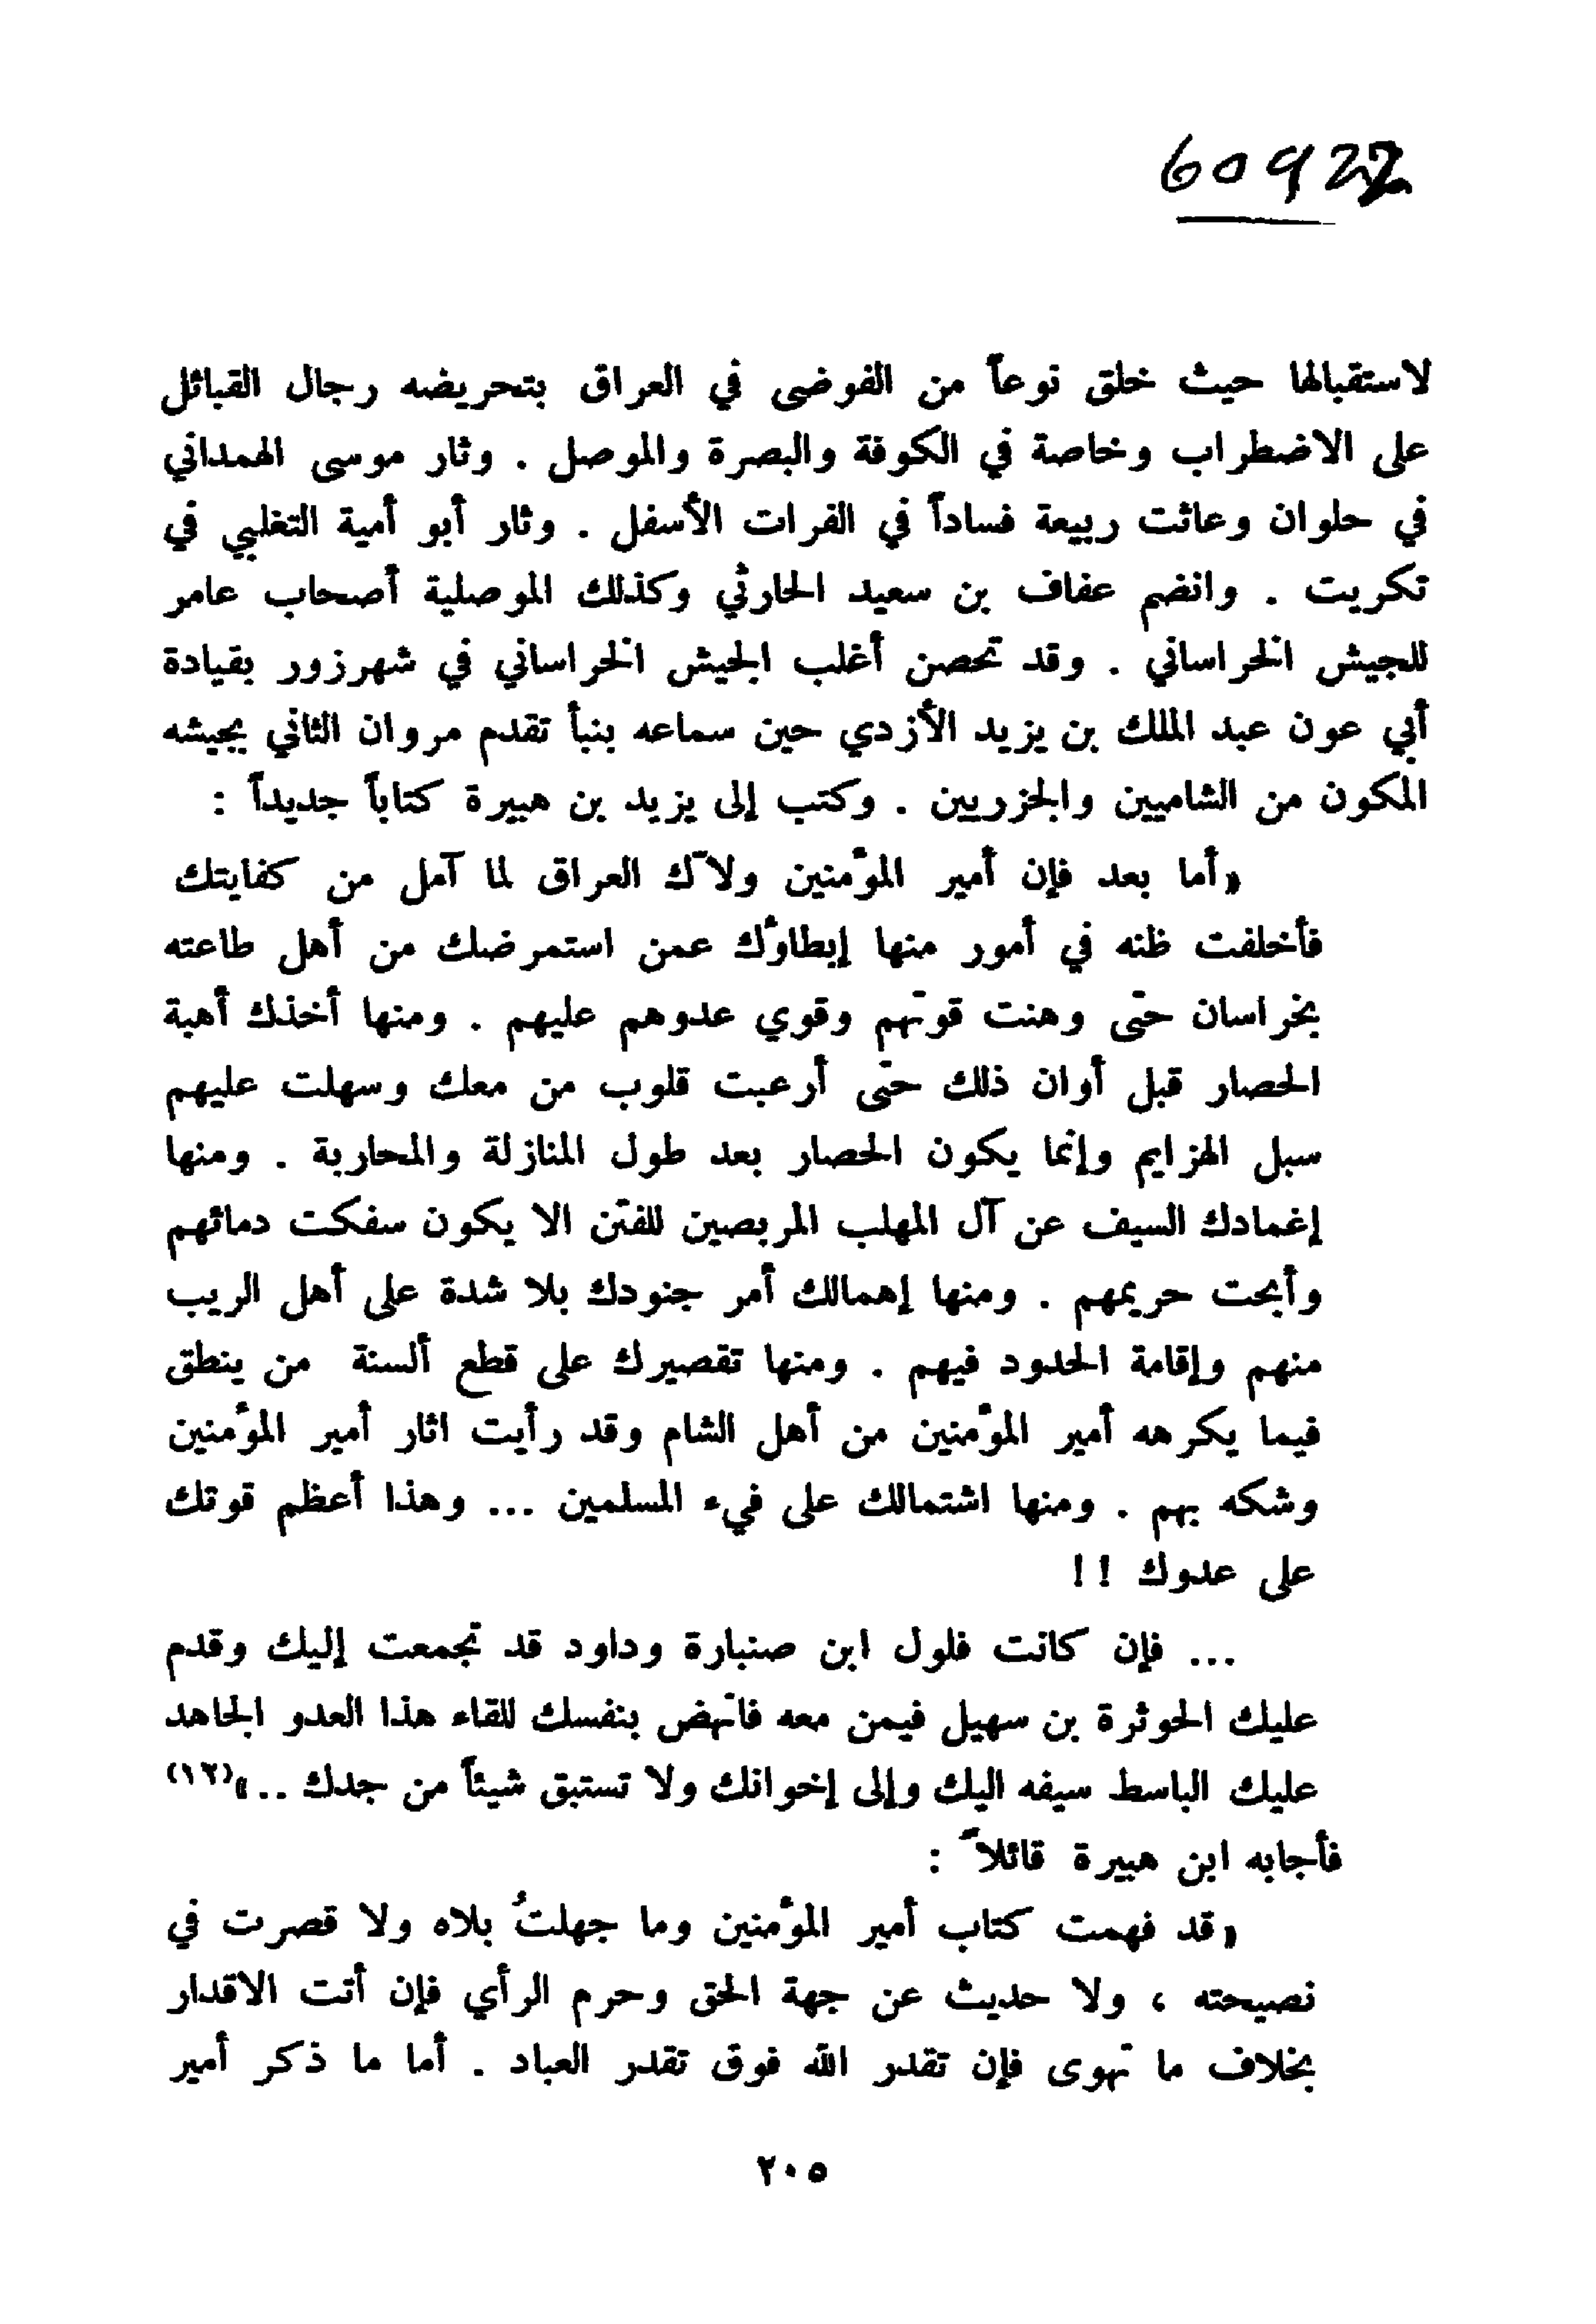 60922
لاستقبالها حيث خلق نوعاً من الفوضى في العراق بتحريضه رجال القبائل
على الاضطراب وخاصة في الكوفة والبصرة والموصل . وثار موسى الهمداني
في حلوان وعاثت ربيعة فساداً في الفرات الأسفل . وثار أبو أمية التغلبي في
تكريت . وانضم عفاف بن سعيد الحارثي وكذلك الموصلية أصحاب عامر
للجيش الخراساني . وقد تحصن أغلب الجيش الخراساني في شهرزور بقيادة
أبي عون عبد الملك بن يزيد الأزدي حين سماعه بنبأ تقدم مروان الثاني بجيشه
المكون من الشاميين والجزريين . وكتب إلى يزيد بن هبيرة كتاباً جديداً :
« أما بعد فإن أمير المؤمنين ولاّك العراق لما آمل من كفايتك
فأخلفت ظنه في أمور منها إبطاؤك عمن استمرضلك من أهل طاعته
بخراسان حتى وهنت قوتهم وقوي عدوهم عليهم . ومنها أخذك أهبة
الحصار قبل أوان ذلك حتى أرعبت قلوب من معك وسهلت عليهم
سبل الهزايم وإنما يكون الحصار بعد طول المنازلة والمحاربة . ومنها
إغمادك السيف عن آل المهلب المربصين للفتن الا يكون سفكت دمائهم
وأبحت حريمهم . ومنها إهمالك أمر جنودك بلا شدة على أهل الريب
منهم وإقامة الحدود فيهم . ومنها تقصيرك على قطع ألسنة من ينطق
فيما يكرهه أمير المؤمنين من أهل الشام وقد رأيت اثار أمير المؤمنين
وشكه بهم . ومنها اشتمالك على فيء المسلمين ... وهذا أعظم قوتك
على عدوك !!
... فإن كانت فلول ابن صنبارة وداود قد تجمعت إليك وقدم
عليك الحوثرة بن سهيل فيمن معه فانهض بنفسك للقاء هذا العدو الجاهد
عليك الباسط سيفه اليك وإلى إخوانك ولا تستبق شيئاً من جدك .. »(١٢)
فأجابه ابن هبيرة قائلاً :
« قد فهمت كتاب أمير المؤمنين وما جهلتُ بلاه ولا قصرت في
نصيحته ، ولا حديث عن جهة الحق وحرم الرأي فإن أتت الاقدار
بخلاف ما تهوى فإن تقدر الله فوق تقدر العباد . أما ما ذكر أمير
٢٠٥